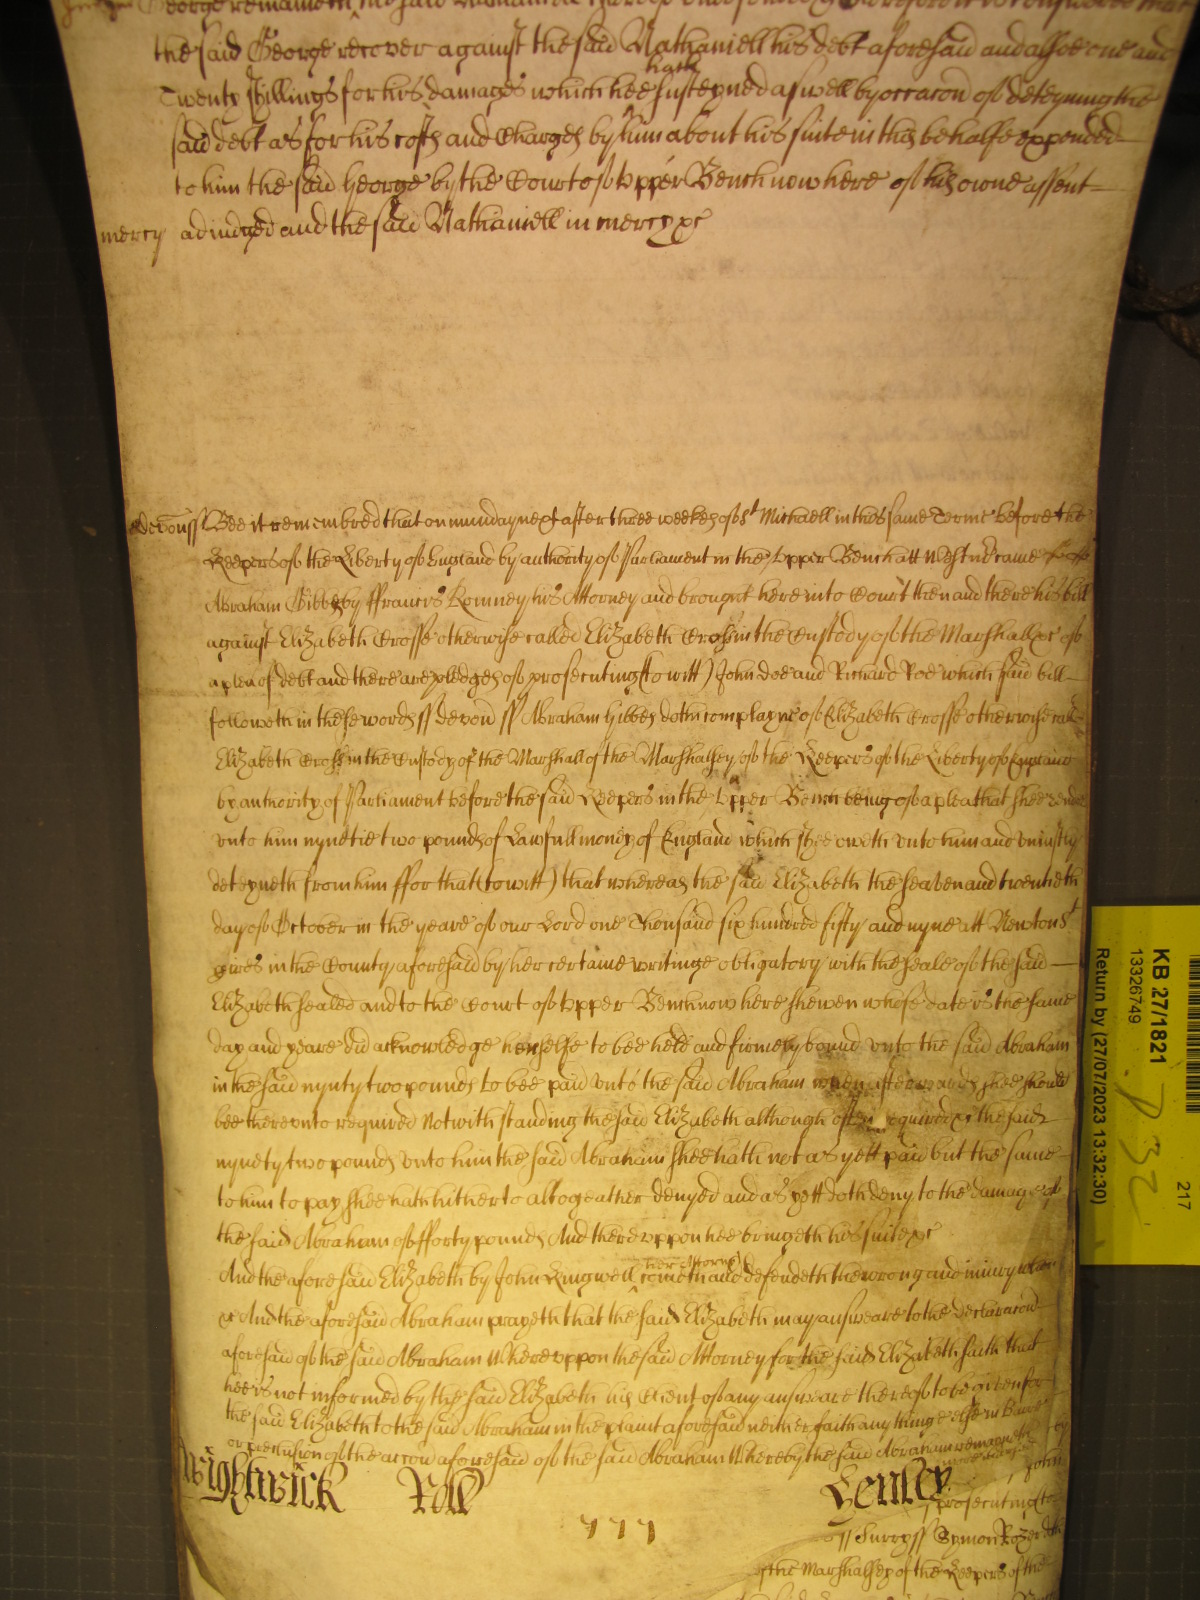 the said George recover against the said Nathaniell his debt aforesaid and alsoe one and
Twenty shillings for his damages which hee hath susteyned aswell by occacon of deteyning the
said debt as for his costs and Charges by him about his suite in this behalfe expended
to him the said George by the Court of Upper Bench now here of his owne assent
mercy adiudged and the said Nathaniell in mercy &c
Devon ss Bee it remembred that on munday next after three weekes of St Michaell in this same Terme before the
Keepers of the Liberty of England by authority of Parliament in the Upper Bench att Westmr came
Abraham Gibbes by ffrancis Romney his Attorney and brought here into Court then and there his bill
against Elizabeth Crosse otherwise called Elizabeth Cross in the Custody of the Marshall &c of
a plea of debt and there are pledges of prosecuting (to witt) John Doe and Richard Roe which said bill
followeth in these words ss Devon ss Abraham Gibbes doth complayne of Elizabeth Crosse otherwise called
Elizabeth Cross in the Custody of the Marshall of the Marshalsey of the Keepers of the Liberty of England
by authority of Parliament before the said Keepers in the Upper Bench being of a plea that shee render
unto him nynetie two pounds of Lawfull money of England which shee oweth unto him and uniustly
deteyneth from him ffor that (to witt) that whereas the said Elizabeth the seaven and twentieth
day of October in the yeare of our Lord one Thousand six hundred fifty and nyne att Newton St
Cires in the County aforesaid by her certaine writinge obligatory with the seale of the said
Elizabeth sealed and to the Court of Upper Bench now here shewen whose date is the same
day and yeare did acknowledge herselfe to bee held and firmely bound unto the said Abraham
in the said nynty two pounds to bee paid unto the said Abraham when afterwards shee should
bee thereunto required Notwithstanding the said Elizabeth although often required &c the said
nynety two pounds unto him the said Abraham shee hath not as yett paid but the same
to him to pay shee hath hitherto altogeather denyed and as yett doth deny to the damage of
the said Abraham of fforty pounds And thereuppon hee bringeth his suite &c
And the aforesaid Elizabeth by John Ringwell her Attorney cometh and defendeth the wrong and iniury when
&c And the aforesaid Abraham prayeth that the said Elizabeth may answeare to the declaracon
aforesaid of the said Abraham Whereuppon the said Attorney for the said Elizabeth saith that
hee is not informed by the said Elizabeth his Client of any answeare thereof to be given for
the said Elizabeth to the said Abraham in the plaint aforesaid neither saith any thinge else in barre
or preclusion of the accon aforesaid of the said Abraham Whereby the said Abraham remayneth
Wightwick Roll Lenley
John
prosecuting to
ss Surry ss Symon
of the Marshalsey of the Keepers of the
KB 27/1821
13326749
217
Return by (27/07/2023 13:32:30)
P 32